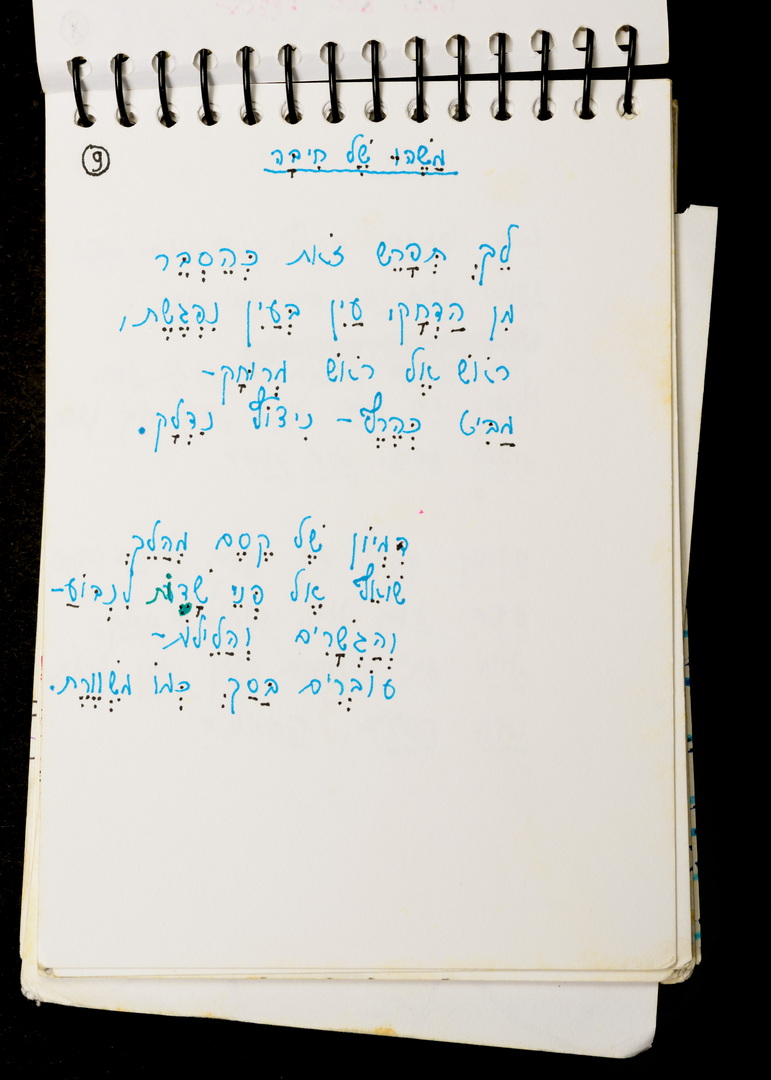 9
מַשֶּׁהוּ שֶׁל חִיבָּה
לֵךְ תְּפָרֵשׁ זֹאת כְּהֶסְבֵּר
מִן הַדְּחָקוֹ עַיִן בְּעַיִן נִפְגֶּשֶׁת,
רֹאשׁ אֶל רֹאשׁ מְרוּחָק-
מַבִּיט כְּהֶרֶף - נִיצוֹץ נִדְלָק.
דִּמְיוֹן שֶׁל קֶסֶם מְהַלֵּךְ
שׁוֹאֵף אֶל פְּנֵי שָׂדוֹת לִנְבּוֹעַ-
וְהַגְּשָׁרִים וְהַלֵּילוֹת-
עוֹבְרִים בַּסַּךְ כְּמוֹ מִשְׁוֹוֶרֶת.